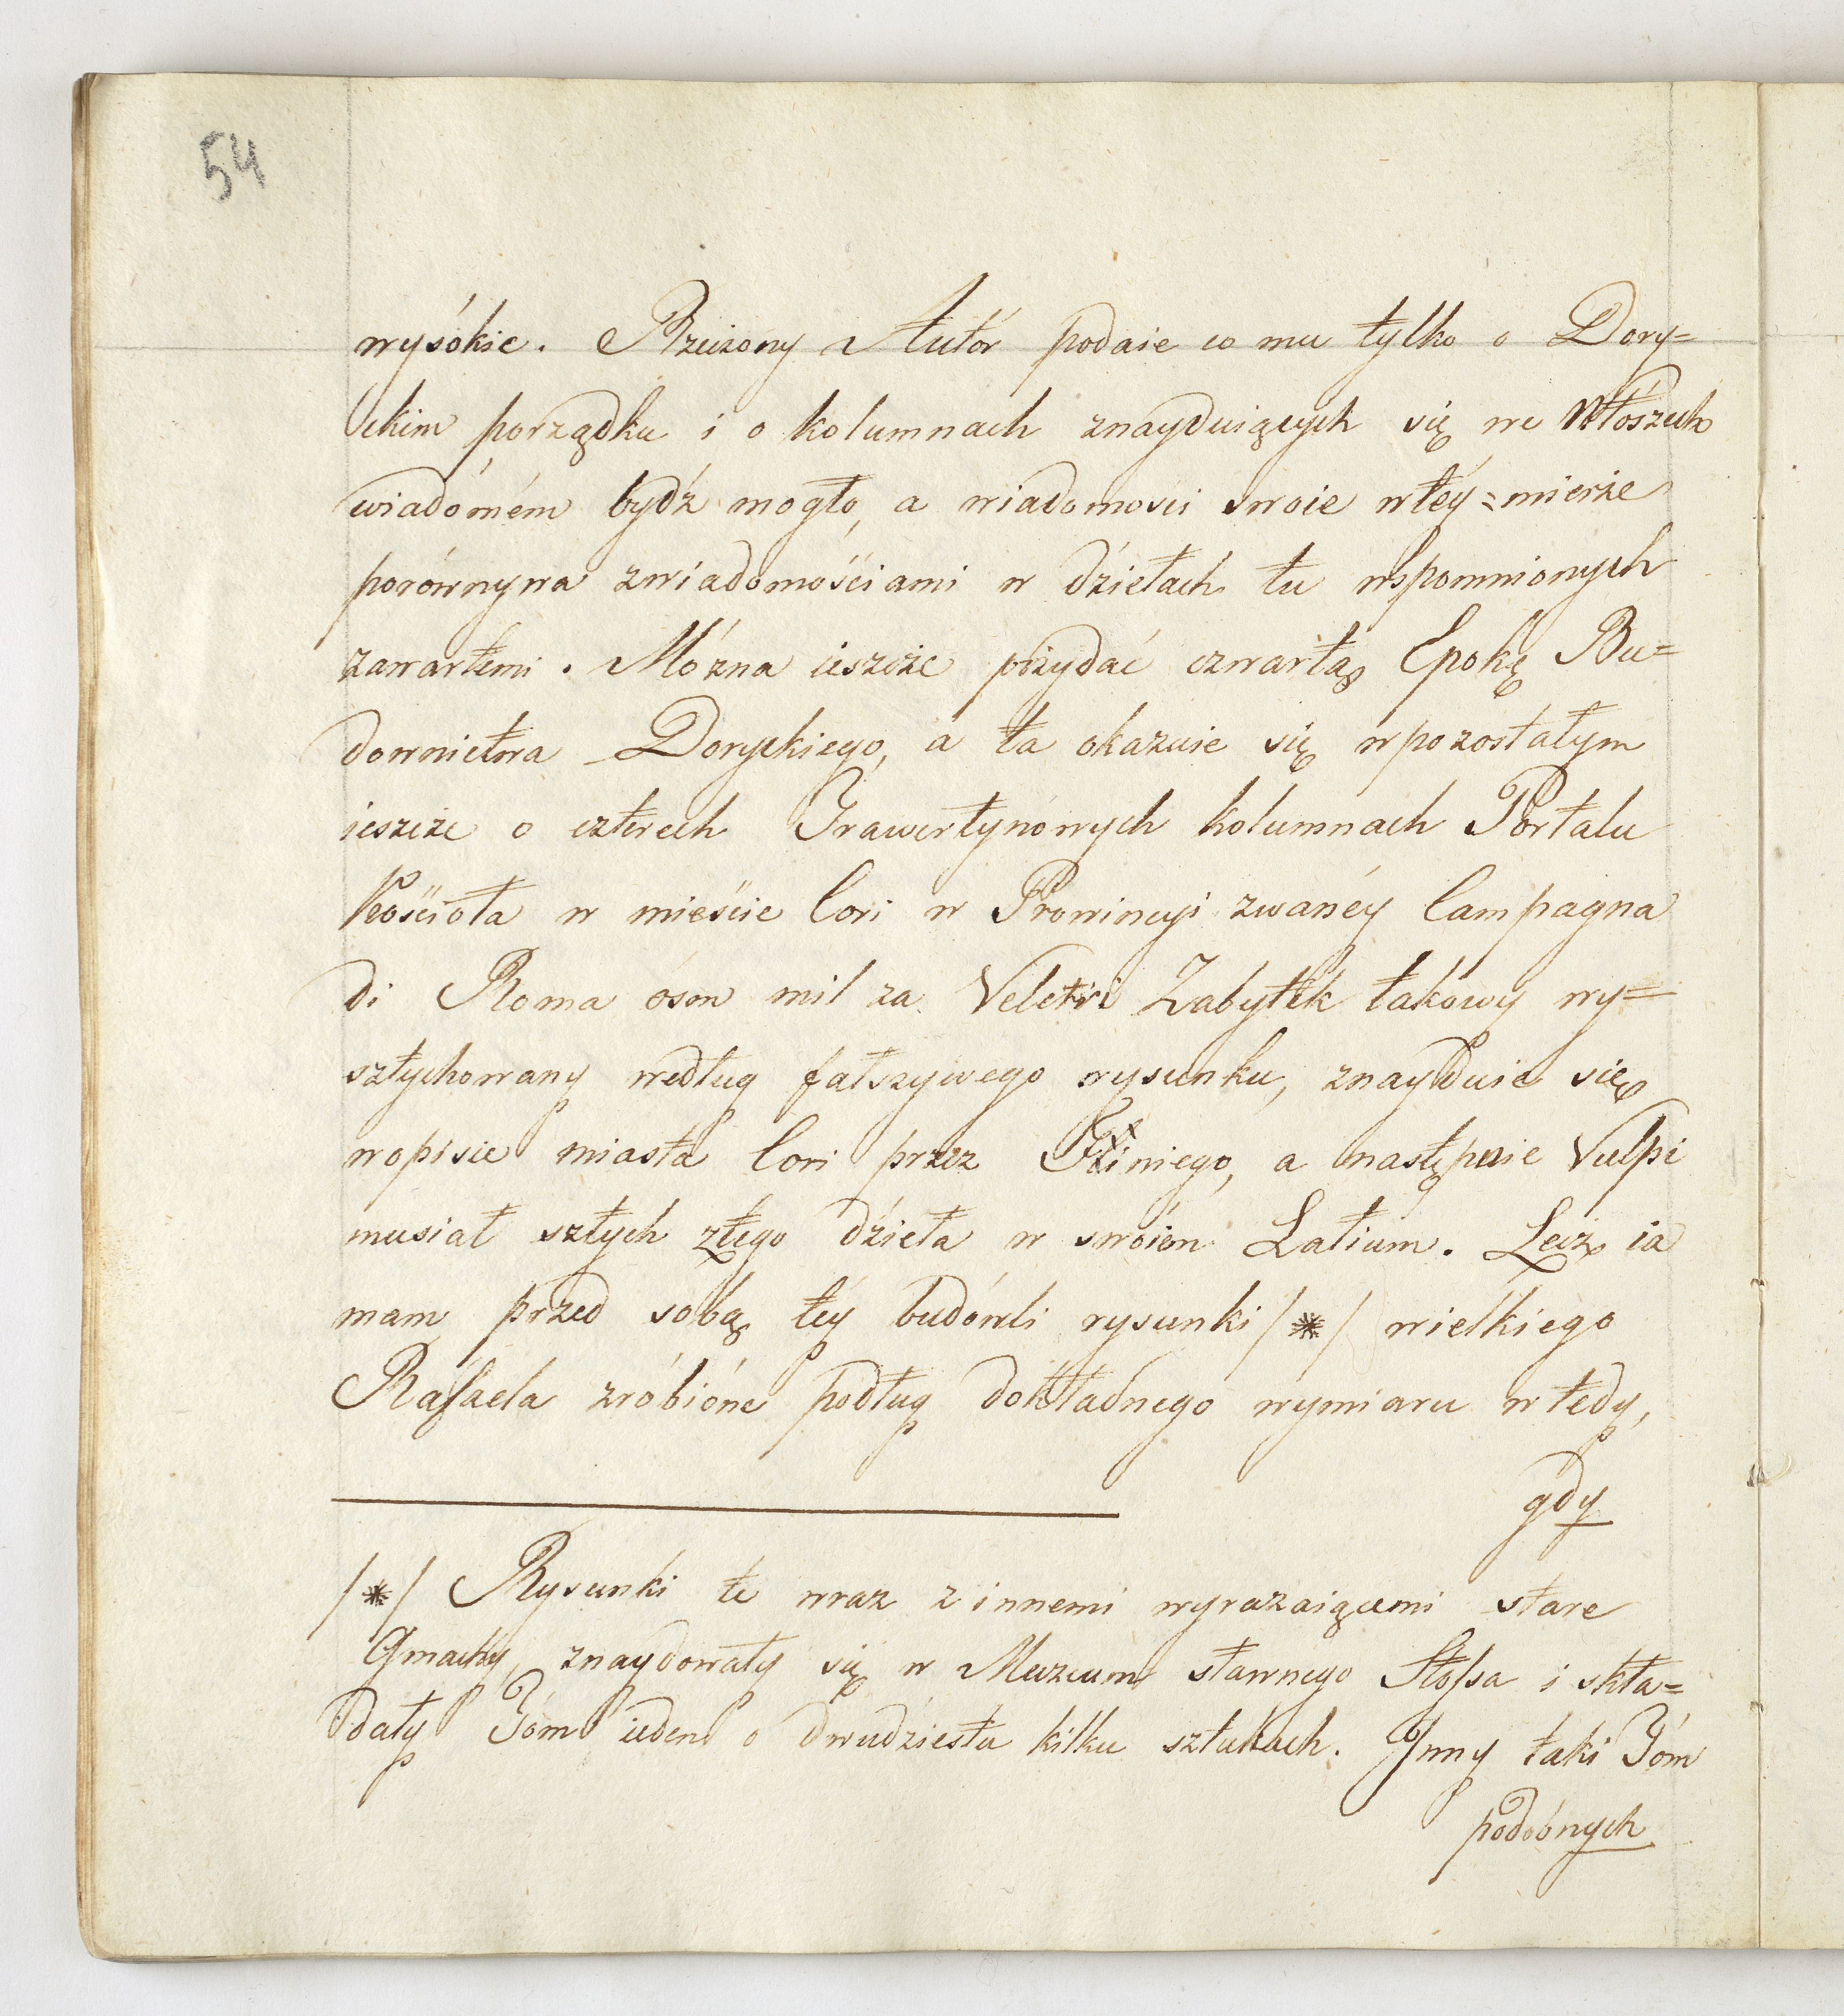 54
wysókie. Rzeczony Autór podaie co mu tylko o Dory=
ckim porządku i o kolumnach znayduiących się we Włószech
wiadómém bydź mogło, a wiadomosci swoie w téy=mierze
porównywa z wiadomościami w dziełach tu wspomnionych
zawartemi. Mózna ieszcze przydać czwartą Epokę Bu=
downictwa Doryckiego, a ta okazuie się w pozostałym
ieszcze o czterech Trawertynówych kolumnach Portalu
Kościoła w mieście Cori w Prowincyi zwanéy Campagna
di Roma ósm mil za Veletri Zabytek takówy wy=
sztychowany według fałszywego rysunku, znayduie się
w opisie miasta Cori przez, a następnie Vulpi
musiał sztych z tego dzieła w swóiem Latium. Lecz ia
mam przed sobą téy budówli rysunki /*/ wielkiego
Rafaela zróbióne podług dokładnego wymiaru w tedy,
gdy
/*/ Rysunki te wraz z innemi wyrazaiącemi stare
Gmachy, znaydowały się w Muzeum sławnego Stoſsa i skła=
dały Tóm ieden o dwudziestu kilku sztukach. Jnny taki Tóm
podobnych